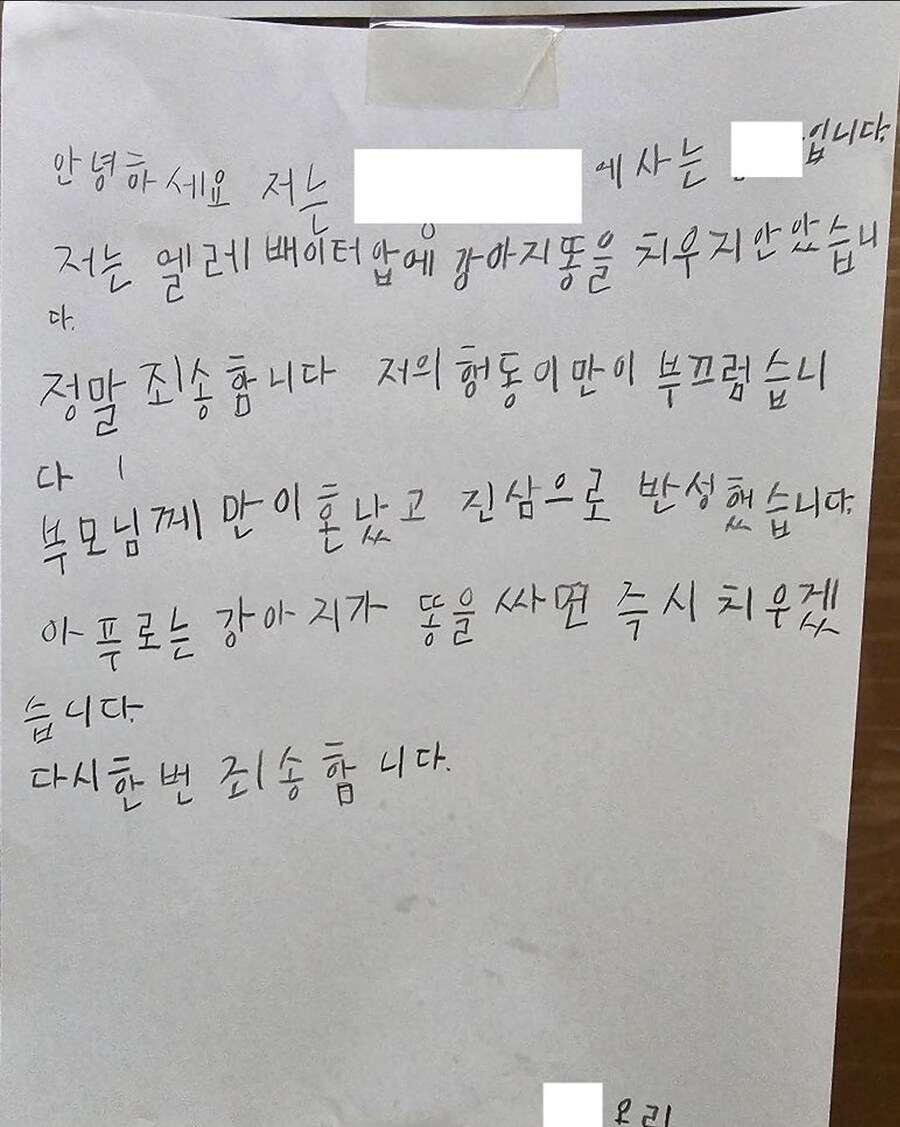 안녕하세요 저는 에 사는 입니다.
저는 엘레배이터 압에 강아지똥을 치우지안았습니
다.
정말 죄송함니다 저의 헹동이만이 부끄럽습니
다
부모님께 만이혼났고 진삼으로 반성했습니다.
아푸로는 강아지가 똥을 싸면 즉시 치우겠
습니다.
다시한번 죄송함니다.
올리